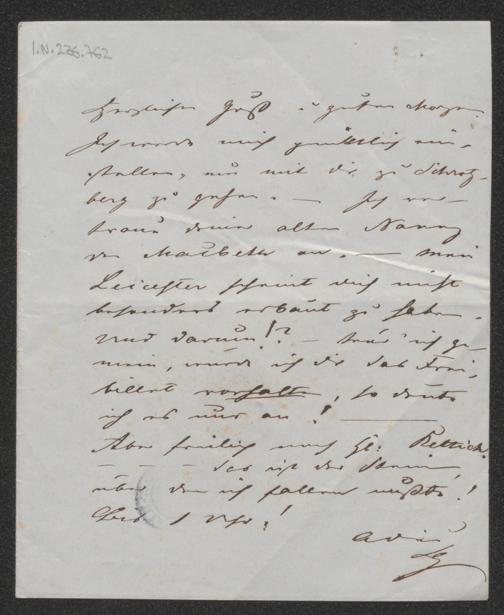 I.N. 236.762
Herzlichen Gruß u guten Morgen.
Ich werde mich pünktlich ein-
stellen, um mit dir zu Schrotz-
berg zu gehen. — Ich ver-
traue deiner alten Nanny
den Macbeth an. — mein
Leicester scheint dich nicht
besonders erbaut zu haben.
Und darum!? — 
mein, würde ich dir das Frei-
billet vorhalten, so
ich es nur an! —
Aber freilich auch Hr. Rettich.
— — — das ist der Stein,
über den ich fallen müßte!
1 Uhr!
Adieu